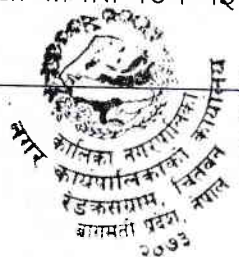 नगर
कालिका नगरपालिका
कार्यपालिकाको कार्यालय
रेडक्रसग्राम, चितवन
बागमती प्रदेश, नेपाल
२०७३